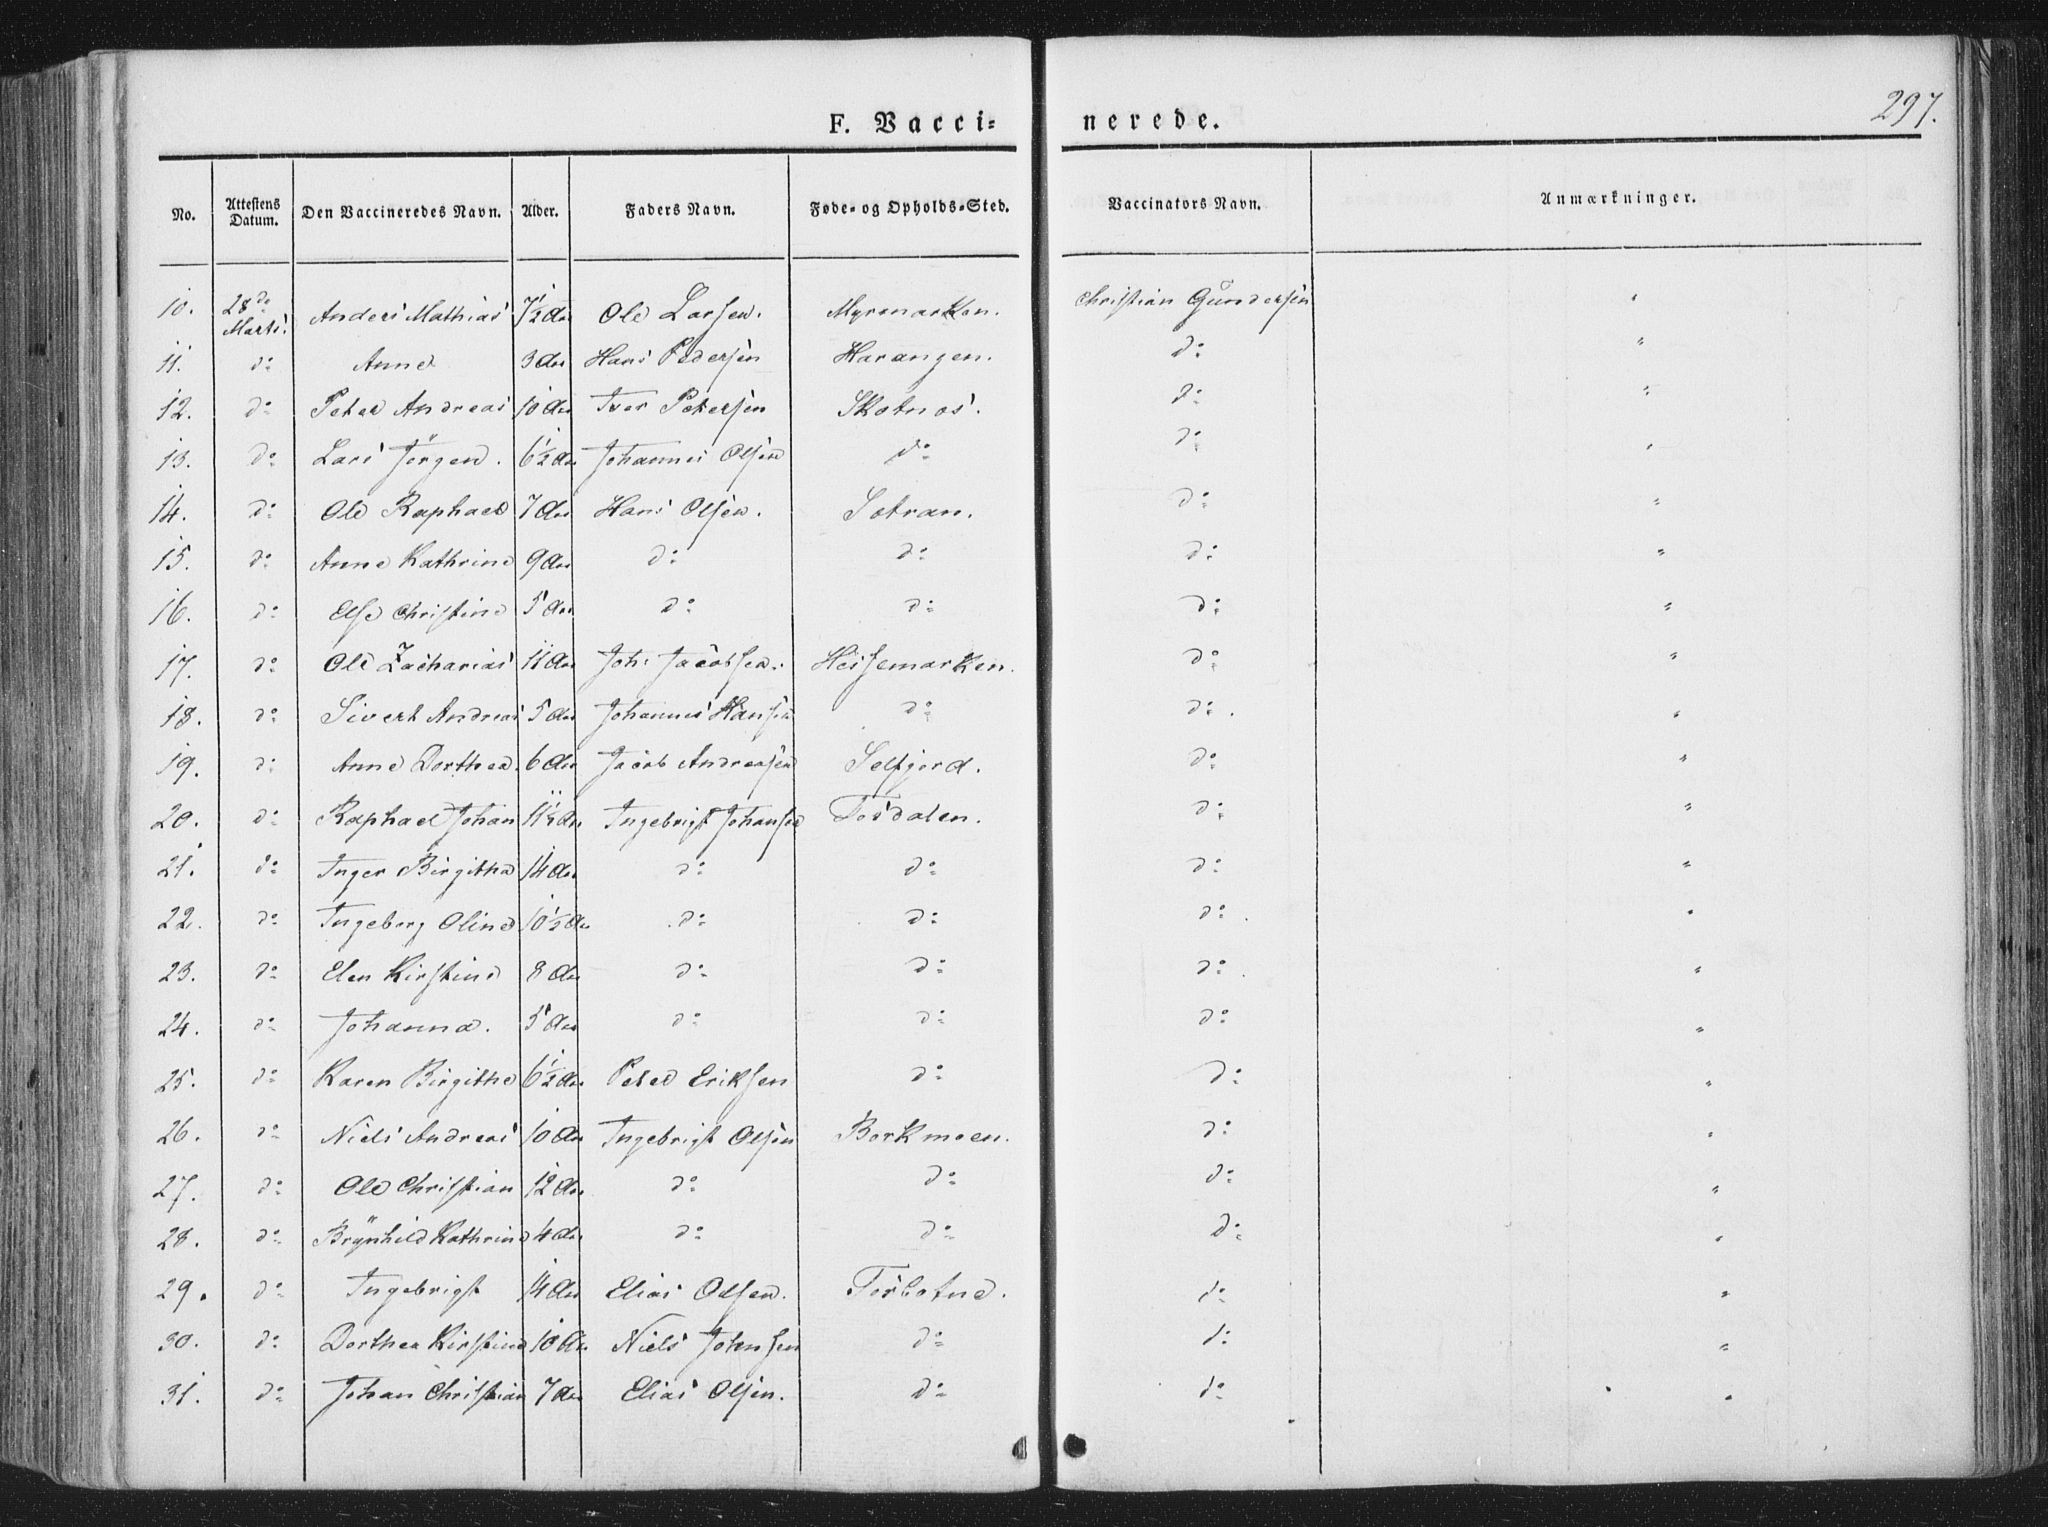 297.
F. Vacci- nerede.
No. Attestens Datum. Den Vaccineredes Navn. Alder. Faders Navn. Føde- og Opholds-Sted. Vaccinators Navn. Anmærkninger.
10. 28de Marts. Anders Mathias 7½ Aar Ole Larsen. Myrmarken. Christian Gundersen "
11. do Anne 3 Aar Hans Pedersen Harangen. do "
12. do Peter Andreas 10 Aar Iver Petersen Skotnes. do "
13. do Lars Jörgen. 6½ Aar Johannes Olsen do do "
14. do Ole Raphael 7 Aar Hans Olsen. Sotran. do "
15. do Anne Kathrine 9 Aar do do do "
16. do Else Christine 5 Aar do do do "
17. do Ole Zacharias 11 Aar Joh: Jacobsen. Heissemarken. do "
18. do Sivert Andreas 5 Aar Johannes Hansen do do. "
19. do Anne Dorthea. 6 Aar Jacob Andreasen Selfjord. do "
20. do Raphael Johan 11½ Aar Ingebrigt Johansen Tosdalen. do "
21. do Inger Birgitha 14 Aar do do do "
22. do Ingeborg Oline 10½ Aar do do do. "
23. do Elen Kirstine 8 Aar do do do. "
24. do Johanna. 5 Aar do do do "
25. do Karen Birgithe 6½ Aar Peter Eriksen do do "
26. do Niels Andreas 10 Aar Ingebrigt Olsen Borkmoen. do "
27. do Ole Christian 12 Aar do do do "
28. do Brÿnhild Kathrine 4 Aar do do do "
29. do Ingebrigt 14 Aar Elias Olsen. Terbotne. do "
30. do Dorthea Kirstine 10 Aar Niels Johnsen do do "
31. do Johan Christian 7 Aar Elias Olsen. do do "